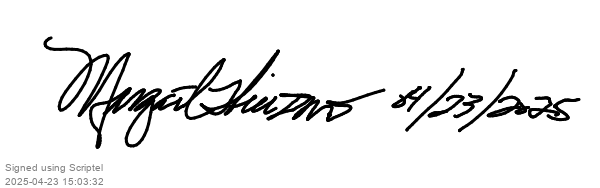 Margaret 04/23/2025
Signed using Scriptel
2025-04-23 15:03:32